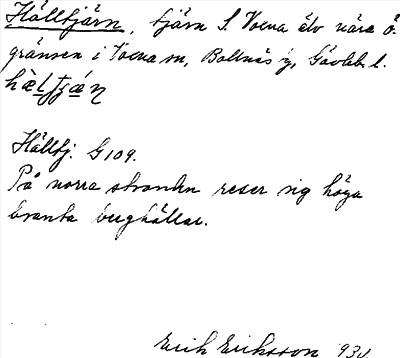 Hälltjärn, tjärn S. Voxna älv nära ö
gränsen i Voxna sn, Bollnäs g, Gävleb. l.
Hälltj. G 109.
På norra stranden reser sig höga
branta berghällar.
Erik Eriksson 1934.